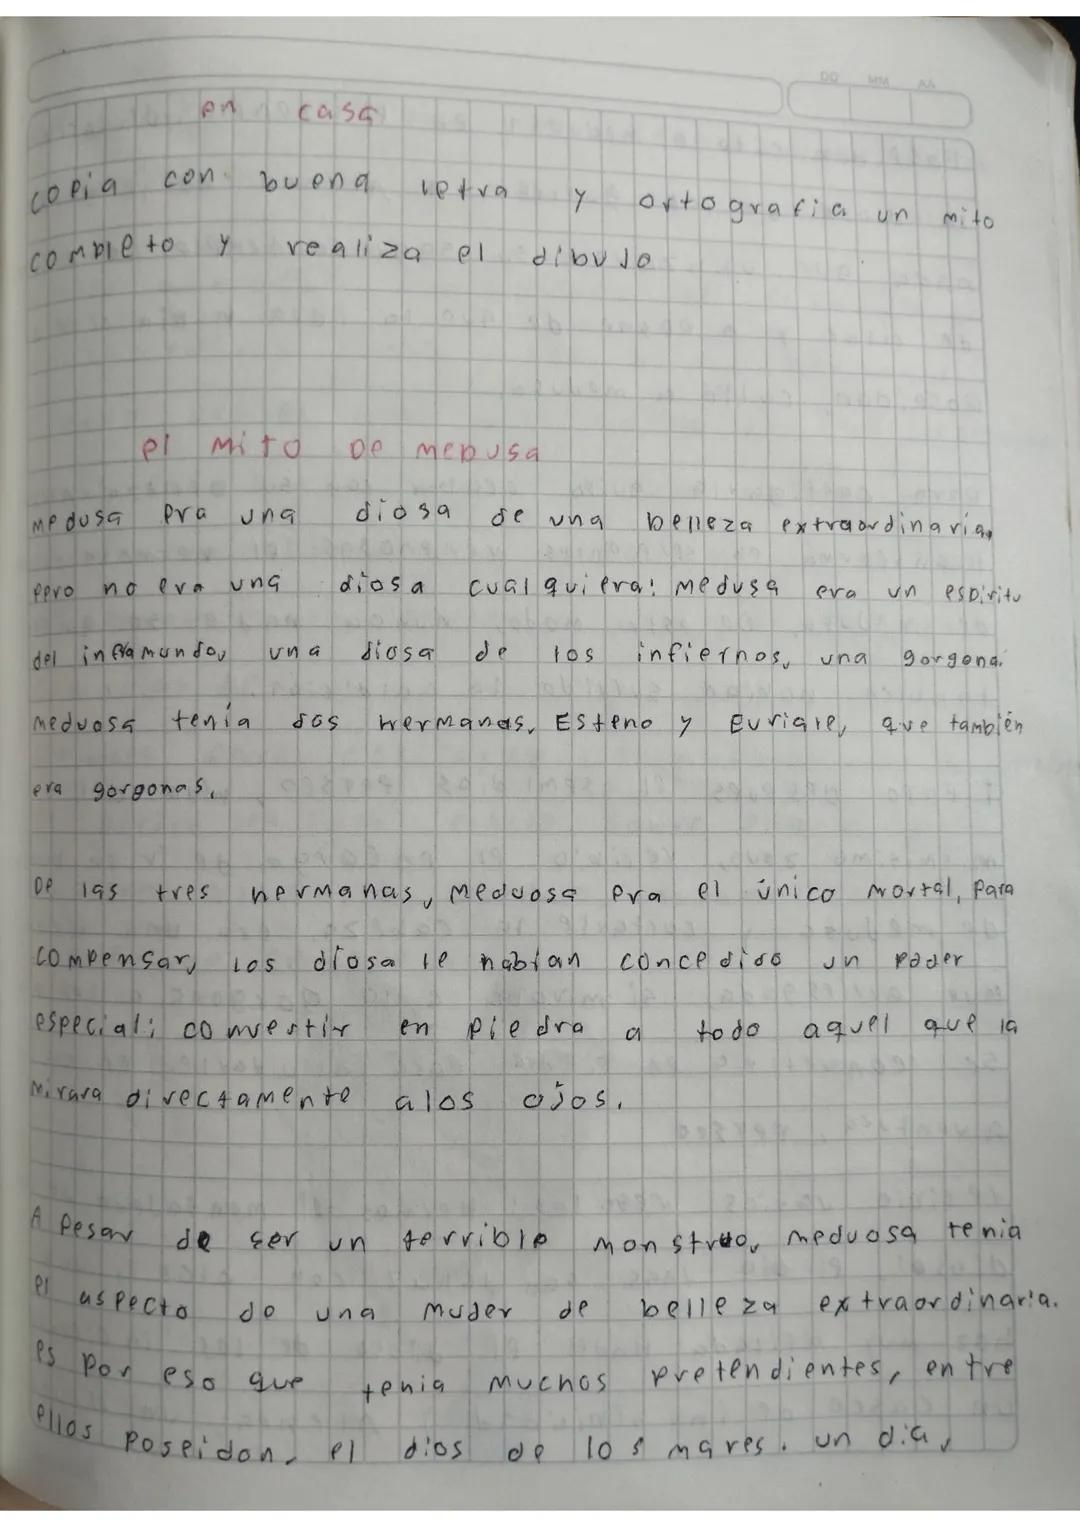 AA MM DD
en casa
copia con buena letra y ortografia un mito
completo y realiza el dibujo
el mito De medusa
medusa era una diosa de una belleza extraordinaria,
pero no era una diosa cualquiera: medusa era un espiritu
del inframundo, una diosa de los infiernos, una gorgona.
meduosa tenía dos hermanas, Esteno y Euriale, que también
era gorgonas.
De las tres hermanas, meduosa era el único mortal, para
compensar, los diosa le habían concedido un poder
especial: comvertir en piedra a todo aquel que la
mirara directamente alos ojos.
A pesar de ser un terrible monstruo, meduosa tenia
el aspecto de una mujer de belleza extraordinaria.
es por eso que tenia muchos pretendientes, entre
ellos poseidon, el dios de los mares. un dia,